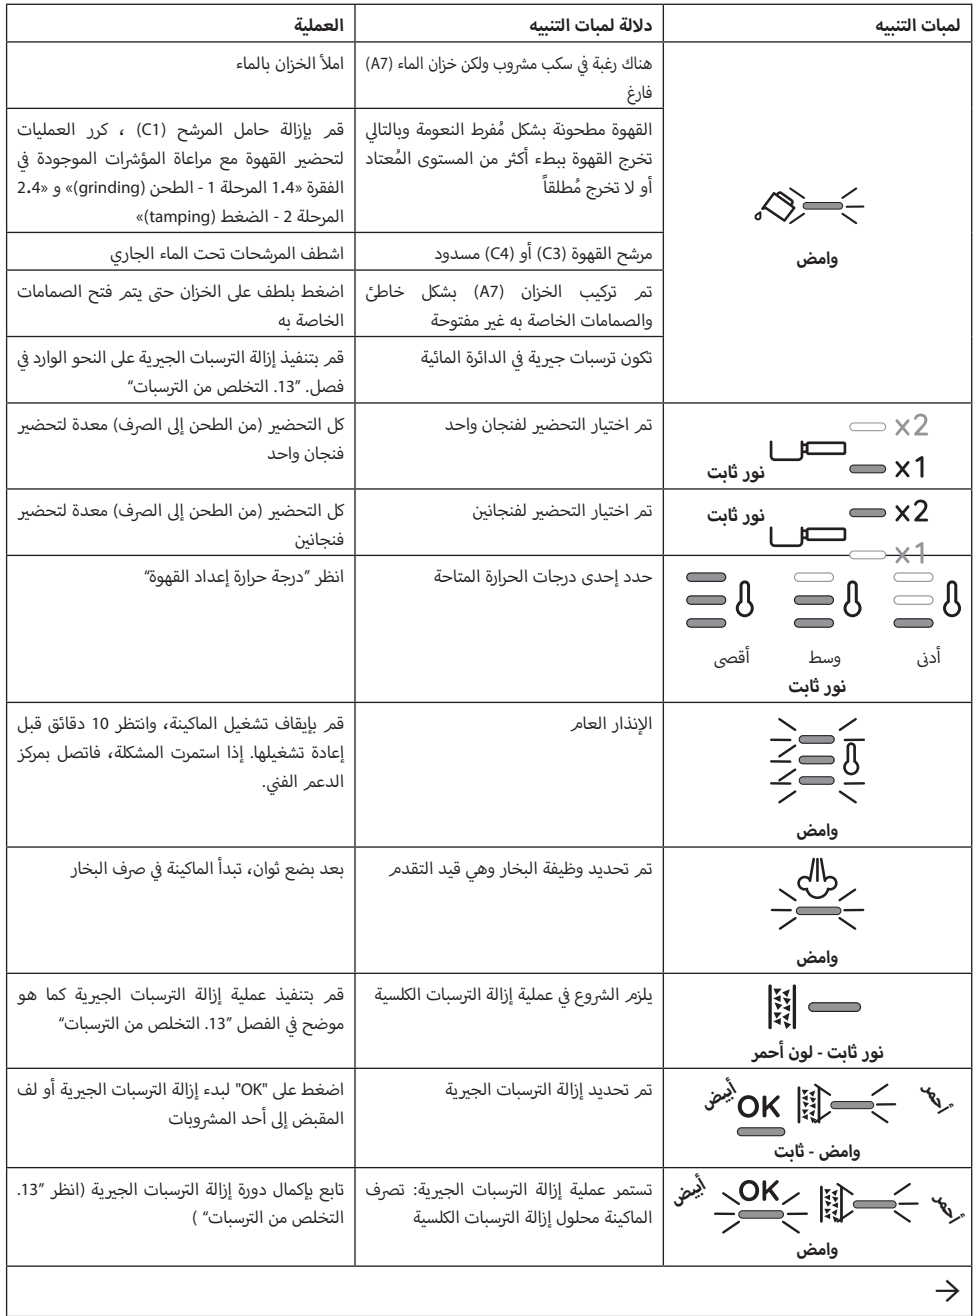 لمبات التنبيه
دلالة لمبات التنبيه
العملية
وامض
هناك رغبة في سكب مشروب ولكن خزان الماء (A7)
فارغ
املأ الخزان بالماء
القهوة مطحونة بشكل مُفرط النعومة وبالتالي
تخرج القهوة ببطء أكثر من المستوى المُعتاد
أو لا تخرج مُطلقاً
قم بإزالة حامل المرشح (C1) ، كرر العمليات
لتحضير القهوة مع مراعاة المؤشرات الموجودة في
الفقرة «1.4 المرحلة 1 - الطحن (grinding)» و «2.4
المرحلة 2 - الضغط (tamping)»
مرشح القهوة (C3) أو (C4) مسدود
اشطف المرشحات تحت الماء الجاري
تم تركيب الخزان (A7) بشكل خاطئ
والصمامات الخاصة به غير مفتوحة
اضغط بلطف على الخزان حتى يتم فتح الصمامات
الخاصة به
تكون ترسبات جيرية في الدائرة المائية
قم بتنفيذ إزالة الترسبات الجيرية على النحو الوارد في
فصل. ”13. التخلص من الترسبات“
x2
x1
نور ثابت
تم اختيار التحضير لفنجان واحد
كل التحضير (من الطحن إلى الصرف) معدة لتحضير
فنجان واحد
x2
نور ثابت
x1
تم اختيار التحضير لفنجانين
كل التحضير (من الطحن إلى الصرف) معدة لتحضير
فنجانين
أدنى وسط أقصى
نور ثابت
حدد إحدى درجات الحرارة المتاحة
انظر ”درجة حرارة إعداد القهوة“
وامض
الإنذار العام
قم بإيقاف تشغيل الماكينة، وانتظر 10 دقائق قبل
إعادة تشغيلها. إذا استمرت المشكلة، فاتصل بمركز
الدعم الفني.
وامض
تم تحديد وظيفة البخار وهي قيد التقدم
بعد بضع ثوان، تبدأ الماكينة في صرف البخار
نور ثابت - لون أحمر
يلزم الشروع في عملية إزالة الترسبات الكلسية
قم بتنفيذ عملية إزالة الترسبات الجيرية كما هو
موضح في الفصل ”13. التخلص من الترسبات“
أحمر
أبيض
OK
وامض - ثابت
تم تحديد إزالة الترسبات الجيرية
اضغط على "OK" لبدء إزالة الترسبات الجيرية أو لف
المقبض إلى أحد المشروبات
أحمر
أبيض
OK
وامض
تستمر عملية إزالة الترسبات الجيرية: تصرف
الماكينة محلول إزالة الترسبات الكلسية
تابع بإكمال دورة إزالة الترسبات الجيرية (انظر ”13.
التخلص من الترسبات“ )